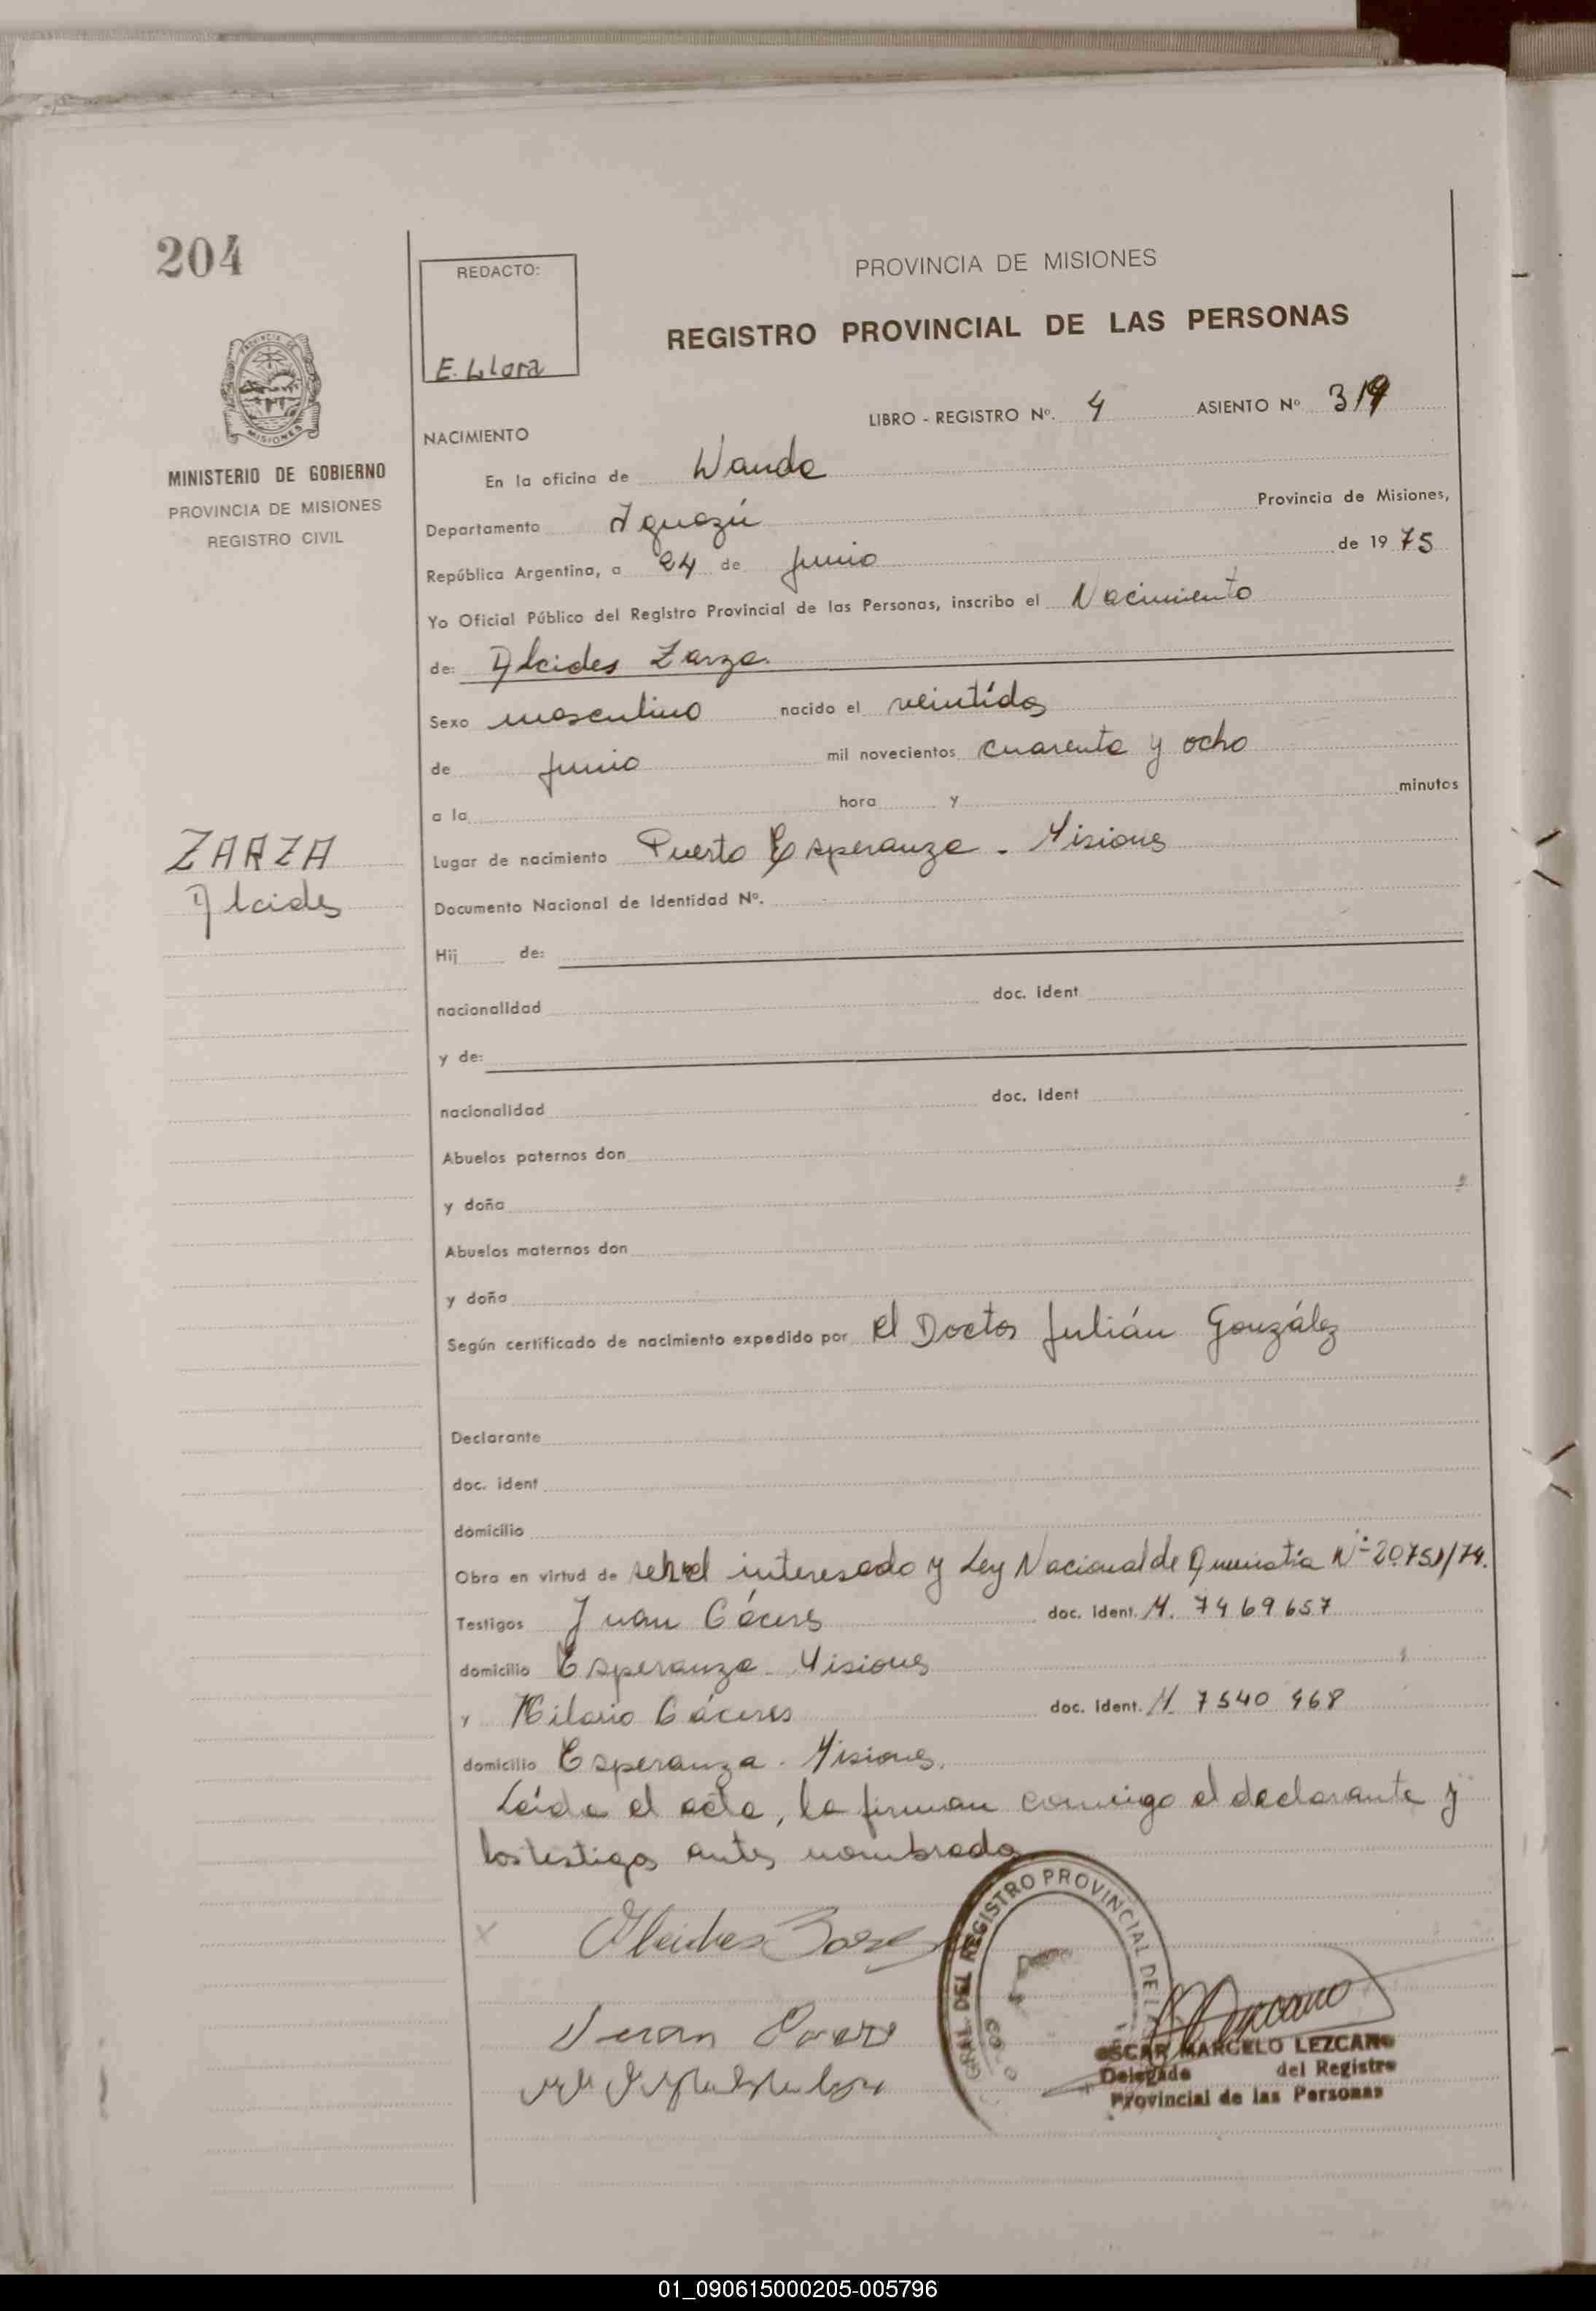 204
REDACTO:
E. Llora
PROVINCIA DE MISIONES
REGISTRO PROVINCIAL DE LAS PERSONAS
MINISTERIO DE GOBIERNO
PROVINCIA DE MISIONES
REGISTRO CIVIL
LIBRO - REGISTRO Nº. 4 ASIENTO Nº
NACIMIENTO
En la oficina de Wanda
Departamento Iguazú Provincia de Misiones,
República Argentina, a 24 de Junio de 1975
Yo Oficial Público del Registro Provincial de las Personas, inscribo el Nacimiento
de: Alcides Zarza.
Sexo masculino nacido el veintidos
de Junio mil novecientos cuarenta y ocho
a la hora y minutos
ZARZA
Alcides
Lugar de nacimiento Puerto Esperanza - Misiones
Documento Nacional de Identidad Nº.
Hij de:
nacionalidad doc. ident
y de:
nacionalidad doc. ident
Abuelos paternos don
y doña
Abuelos maternos don
y doña
Según certificado de nacimiento expedido por el Doctor Julián González
Declarante
doc. ident
domicilio
Obra en virtud de ser el interesado y Ley Nacional de Amnistía Nº
Testigos Juan Cáceres doc. ident. M. 7469657
domicilio Esperanza - Misiones
y Hilario Cáceres doc. ident. M. 7540 468
domicilio Esperanza - Misiones.
Leída el acta, la firman conmigo el declarante y
los testigos antes nombrados
GRAL. DEL REGISTRO PROVINCIAL DE
OSCAR MARCELO LEZCANO
Delegado del Registro
Provincial de las Personas
01_090615000205-005796